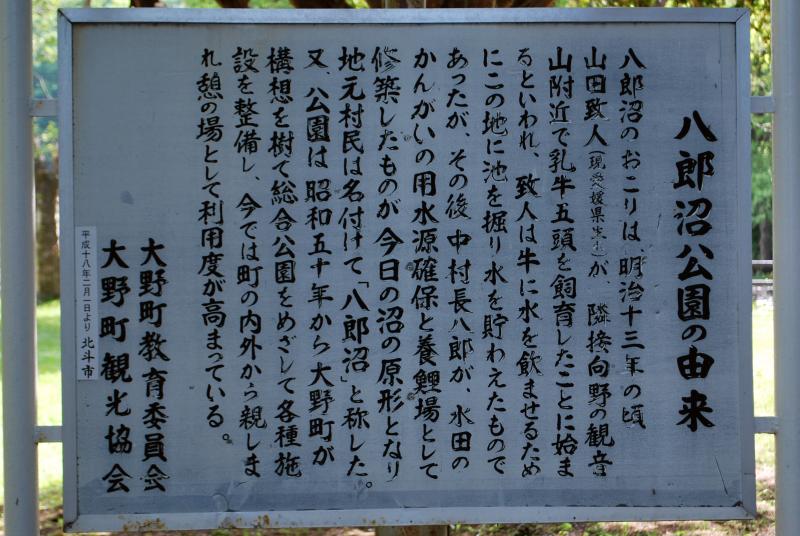 八郎沼公園の由来
八郎沼のおこりは、明治十三年の頃
山田致人(現愛媛県生れ)が、隣接向野の観音
山附近で乳牛五頭を飼育したことに始ま
るといわれ、致人は牛に水を飲ませるため
にこの地に池を掘り水を貯わえたもので
あったが、その後中村長八郎が、水田の
かんがいの用水源確保と養鯉場として
修築したものが今日の沼の原形となり
地元村民は名付けて「八郎沼」と称した。
又、公園は昭和五十年から大野町が
構想を樹て総合公園をめざして各種施
設を整備し、今では町の内外から親しま
れ憩の場として利用度が高まっている。
大野町教育委員会
大野町観光協会
平成十八年二月一日より 北斗市